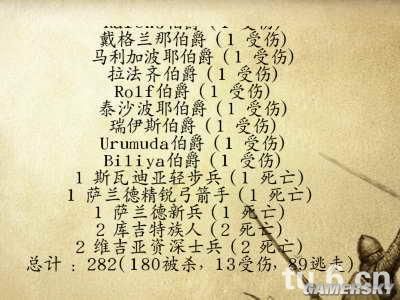 戴格兰那伯爵 (1 受伤)
马利加波耶伯爵 (1 受伤)
拉法齐伯爵 (1 受伤)
Rolf伯爵 (1 受伤)
泰沙波耶伯爵 (1 受伤)
瑞伊斯伯爵 (1 受伤)
Urumuda伯爵 (1 受伤)
Biliya伯爵 (1 受伤)
1 斯瓦迪亚轻步兵 (1 死亡)
1 萨兰德精锐弓箭手 (1 死亡)
1 萨兰德新兵 (1 死亡)
2 库吉特族人 (2 死亡)
2 维吉亚资深士兵 (2 死亡)
总计 : 282(180被杀, 13受伤, 89逃走)
tu.6.cn
GAMERSKY